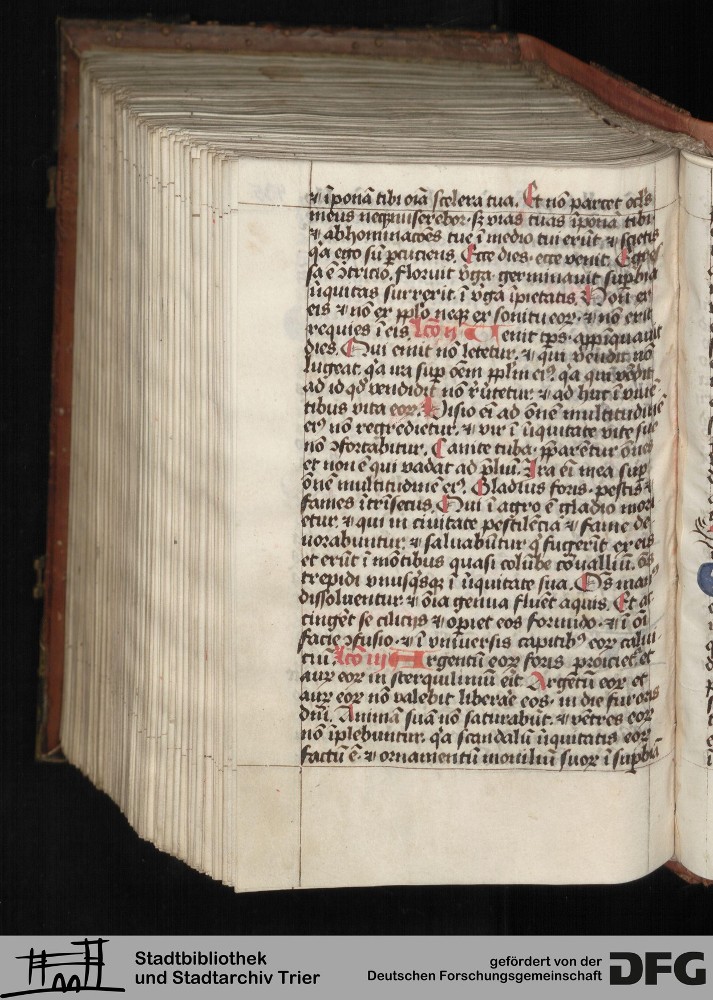 ⁊ īponā tibi oīa scelera tua. Et nō parcet ocl's
meus neq; miserebor. sꝫ vias tuas īponā tibi
⁊ abhominacōes tue ī medio tui erūt. ⁊ scietis
q̄a ego sū ꝑcuciens. Ecce dies. ecce venit. Egres
sa ē ɔtricio. floruit v̄ga. germinauit supbia
īiquitas surrexit ī v̄gā īpietatis. Non ex
eis ⁊ nō ex pplo neq; ex sonitu eoꝝ. ⁊ nō erit
requies ī eis. Lcō ij Venit tp̄s. appīquauit
dies. Qui emit nō letetur. ⁊ qui vendit nō
lugeat. q̄a ira sup oēm pplm eiꝰ. q̄a qui vēdit
ad id qd̓ vendidit nō r̄utetur. ⁊ adhuc ī viuē
tibus vita eoꝝ. Visio eī ad ōnē multitudinē
eiꝰ nō regredietur. ⁊ vir ī īiquitate vite sue
nō ɔfortabitur. Canite tuba. p̄parētur ōnes
et non ē qui vadat ad p̄liū. Ira eī mea sup
ōnē multitudinē eiꝰ. Gladius foris. pestis ⁊
fames ītrīsecus. Qui ī agro ē gladio mori
etur. ⁊ qui in ciuitate pestilēcia ⁊ fame de
uorabuntur. ⁊ saluabūtur q̄ fugerīt ex eis
et erūt ī mōtibus quasi colūbe cōualliū. ōs
trepidi vnusq̄sq; ī īiquitate sua. Ōs man9
dissoluentur. ⁊ oīa genua fluēt aquis. Et ac
cingēt se cilicijs ⁊ opiet eos formido. ⁊ ī oī
facie ɔfusio. ⁊ ī vniuersis capitibꝰ eoꝝ calui
ciū. Lcō iij Argentū eoꝝ foris proiciet̄ et
auꝝ eoꝝ in sterquiliniū erit. Argētū eoꝝ et
auꝝ eoꝝ nō valebit liberare eos. in die furoris
dn̄i. Animā suā nō saturabūt. ⁊ vētres eoꝝ
nō īplebuntur. q̄a scandalū īiquitatis eoꝝ
factū ē. ⁊ ornamentū moniliū suoꝝ ī supbiā
Stadtbibliothek
und Stadtarchiv Trier
gefördert von der
Deutschen Forschungsgemeinschaft
DFG